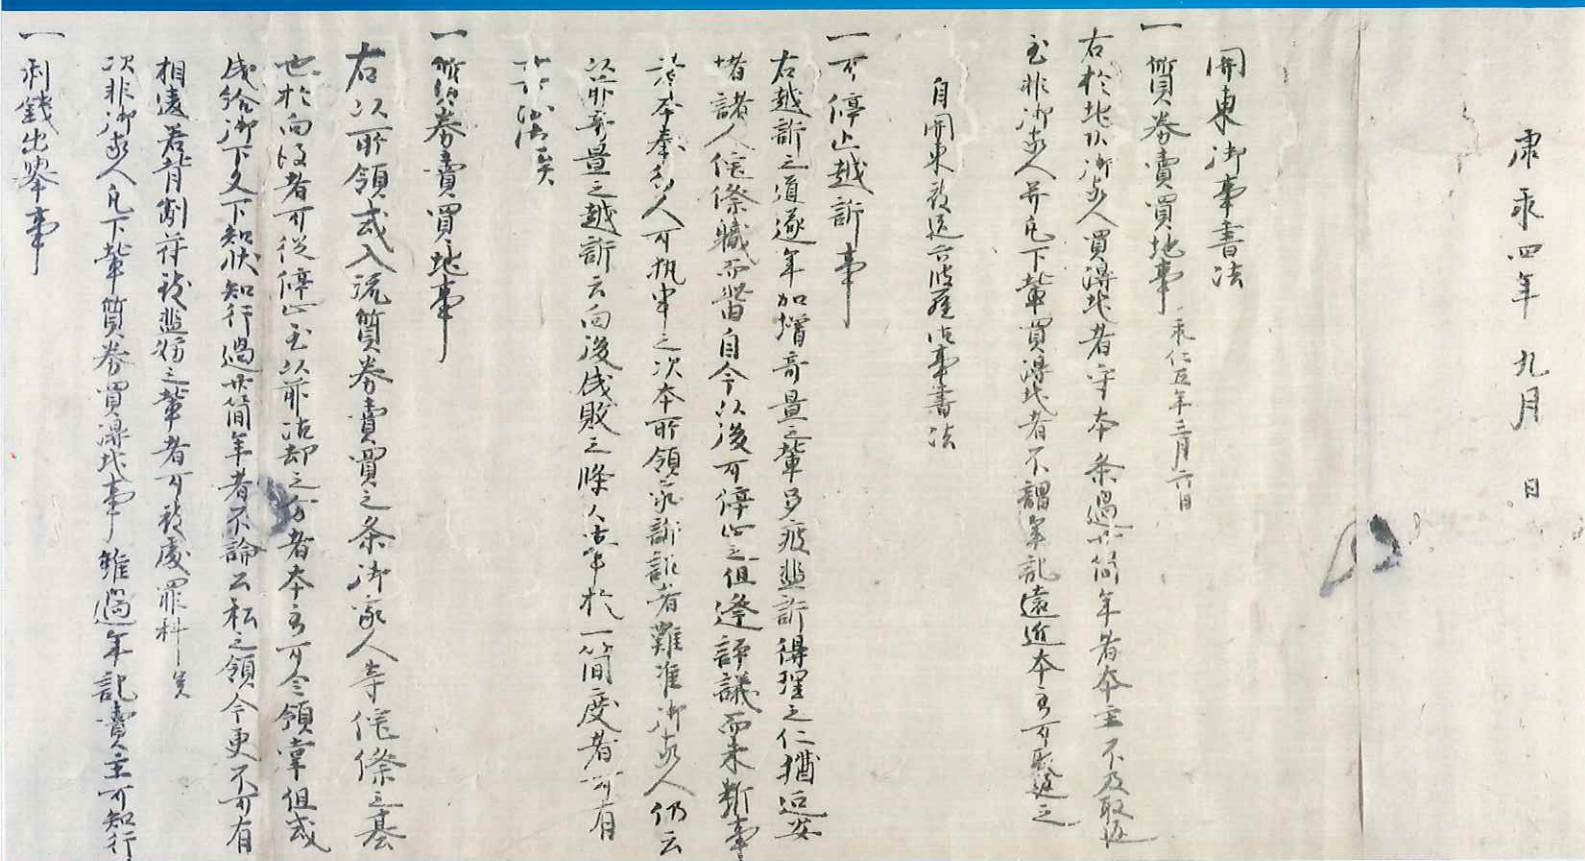 康永四年 九月 日
関東御事書法
一 質券賣買地事 永仁五年三月六日
右於地頭御家人買得地者守本条過廿箇年者本主不及取返
至非御家人并凡下輩買得地者不謂年記遠近本主可取返之
自関東被送六波羅御事書法
一 可停止越訴事
右越訴之道逐年加増棄置之輩多疲濫訴得理之仁猶回安
堵諸人侘傺職而此由自今以後可停止之但逢評議而未断事
者本奉行人可執申之次本所領家訴訟者難准御家人仍云
以前棄置之越訴云向後成敗之條々事於一箇度者可有
其沙汰矣
一 質券賣買地事
右以所領或入流質券賣買之条御家人等侘傺之基
也於向後者可従停止至以前沽却之分者本主可令領掌但或
成給御下文下知状知行過廿箇年者不論公私之領今更不可有
相違若背制符致濫妨之輩者可被處罪科矣
次非御家人凡下輩質券買得地事 雖過年記賣主可知行
一 利錢出挙事